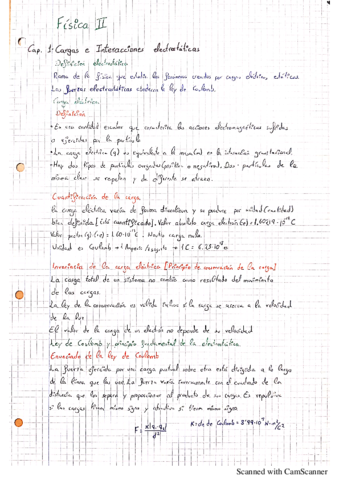 Física II
Cap. 1: Cargas e Interacciones electrostáticas
Definición electrostática
Rama de la física que estudia los fenómenos creados por cargas eléctricas estáticas
Las fuerzas electrostáticas obedecen la ley de Coulomb.
Carga eléctrica
Definición
• Es una cantidad escalar que caracteriza las acciones electromagnéticas sufridas
o ejercidas por la partícula
• La carga eléctrica (q) es equivalente a la masa (m) en la interacción gravitacional.
• Hay dos tipos de partículas cargadas (positivas o negativas). Dos partículas de la
misma clase se repelen y de diferente se atraen.
Cuantificación de la carga
La carga eléctrica varía de forma discontinua y se produce por unidad (cantidad)
bien definida [está cuantificada]. Valor absoluto carga electrón (e) = 1,60219·10⁻¹⁹ C
Valor protón (q) (+e) = 1,60·10⁻¹⁹ C; Neutro carga nula.
Unidad es Coulomb → 1C = 6.23·10¹⁸ e
Invariancia de la carga eléctrica [Principio de conservación de la carga]
La carga total de un sistema no cambia como resultado del movimiento
de las cargas.
La ley de la conservación es válida incluso si la carga se acerca a la velocidad
de la luz
El valor de la carga de un electrón no depende de su velocidad
Ley de Coulomb y principio fundamental de la electrostática.
Enunciado de la ley de Coulomb
La fuerza ejercida por una carga puntual sobre otra está dirigida a lo largo
de la línea que las une. La fuerza varía inversamente con el cuadrado de la
distancia que las separa y proporcional al producto de sus cargas. Es repulsiva
si las cargas tienen mismo signo y atractiva si tienen
K = cte de Coulomb = 8'99·10⁹ N·m²/C²
d²
Scanned with CamScanner